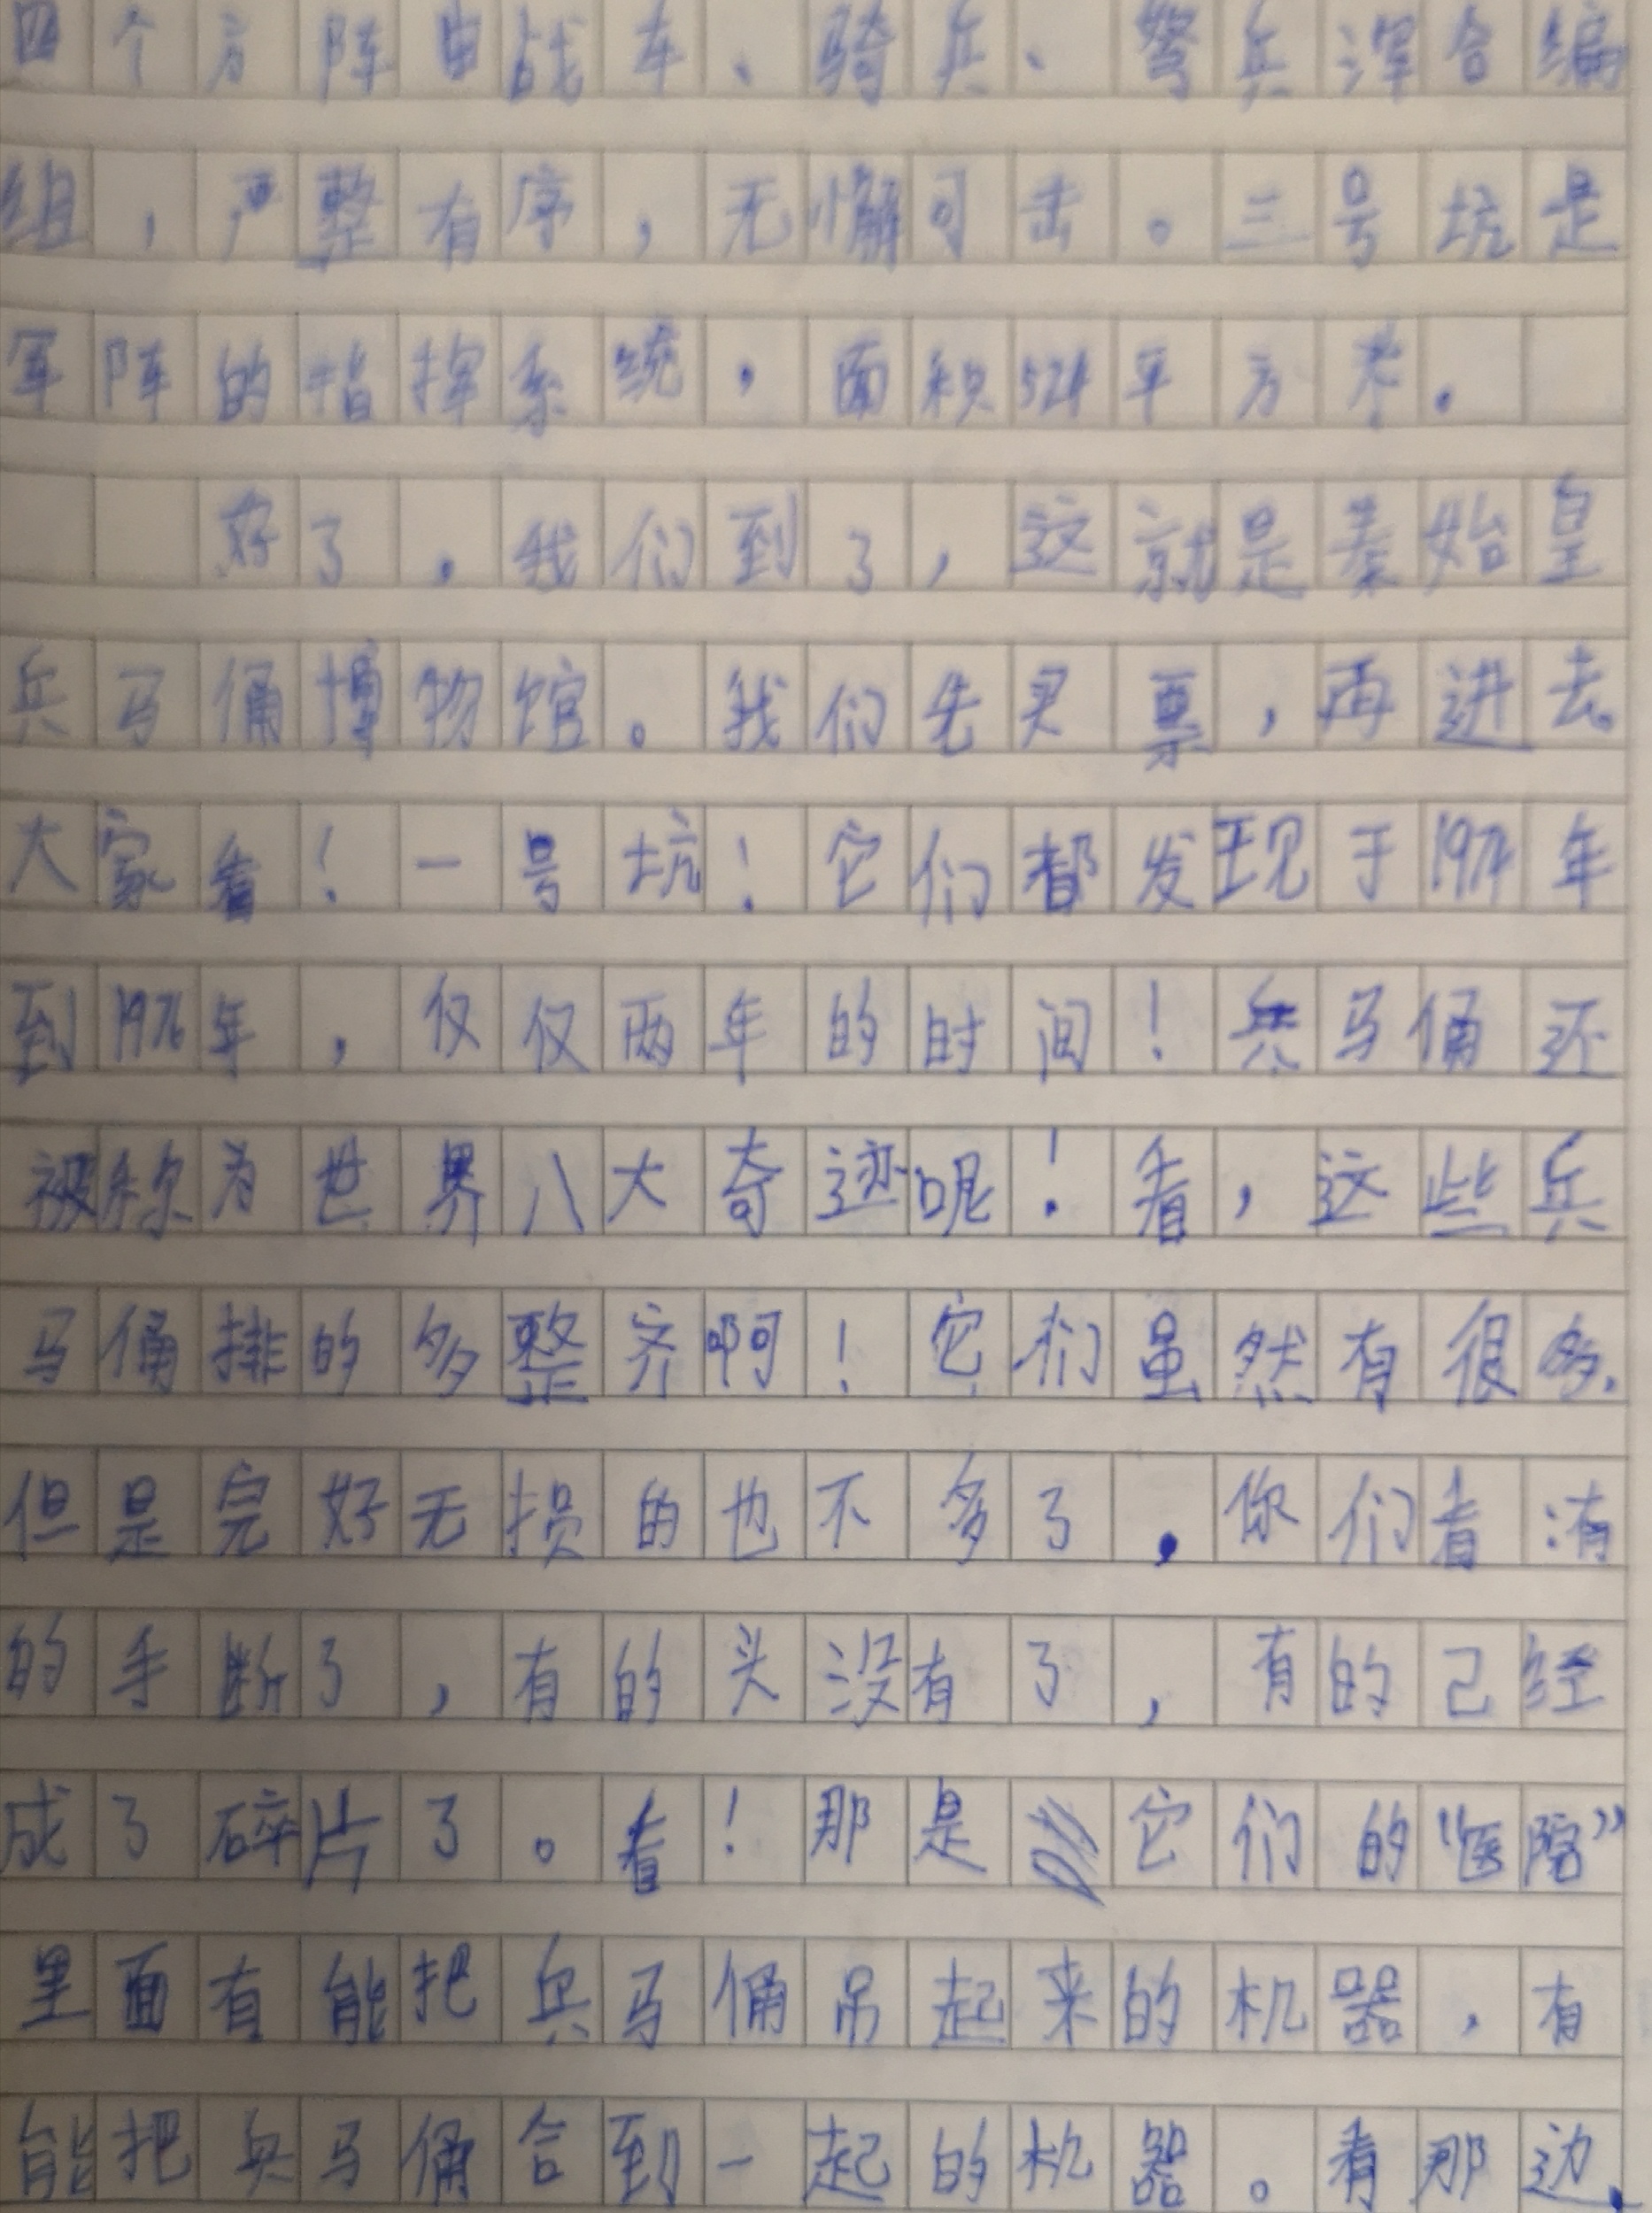 四个方阵由战车、骑兵、弩兵浑合编
组，严整有序，无懈可击。三号坑是
军阵的指挥系统，面积524平方米。
好了，我们到了，这就是秦始皇
兵马俑博物馆。我们先买票，再进去。
大家看！一号坑！它们都发现于1974年
到1976年，仅仅两年的时间！兵马俑还
被称为世界八大奇迹呢！看，这些兵
马俑排的多整齐啊！它们虽然有很多，
但是完好无损的也不多了，你们看：有
的手断了，有的头没有了，有的己经
成了碎片了。看！那是它们的“医院”
里面有能把兵马俑吊起来的机器，有
能把兵马俑合到一起的机器。看那边，